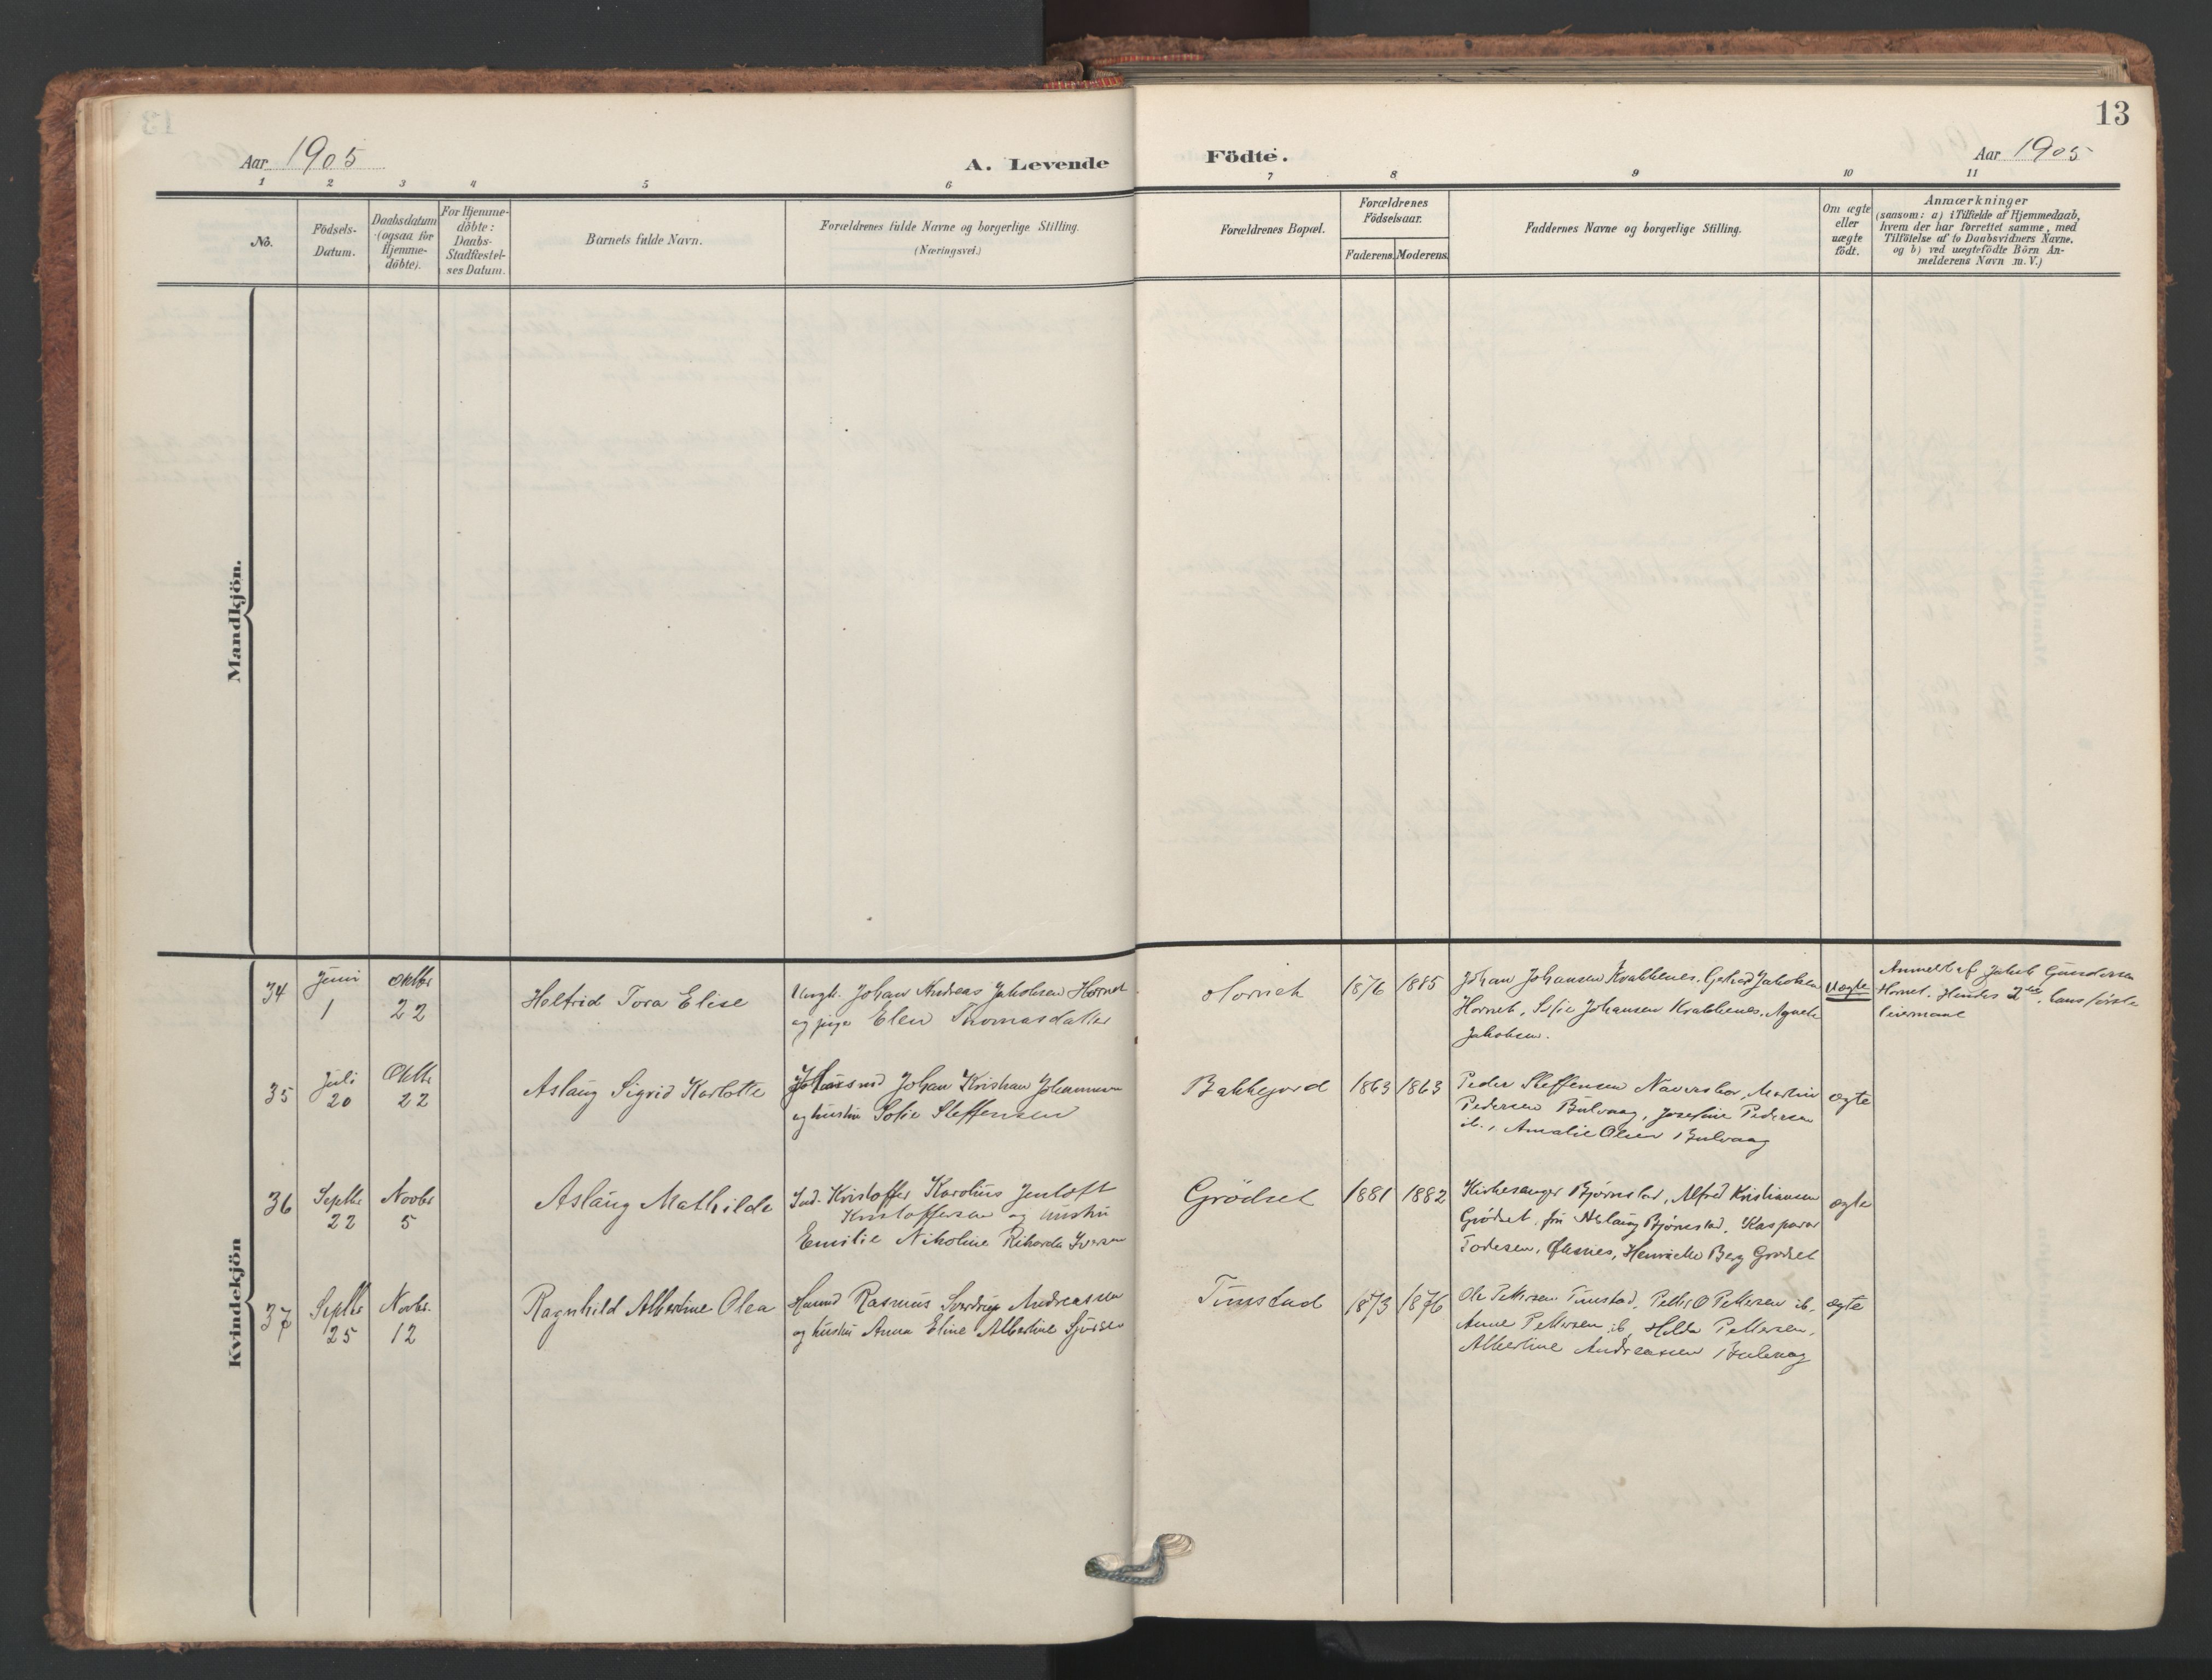 13
Aar 1905
A. Levende
Födte.
Aar 1905
1 2 3 4 5 6 7 8 9 10 11
No.
Födsels-
Datum.
Daabsdatum
(ogsaa for
Hjemme-
döbte).
For Hjemme-
döbte:
Daabs-
Stadfæstel-
ses Datum.
Barnets fulde Navn.
Forældrenes fulde Navne og borgerlige Stilling.
(Næringsvei.)
Forældrenes Bopæl.
Forældrenes
Födselsaar.
Faderens. Moderens.
Faddernes Navne og borgerlige Stilling.
Om ægte
eller
uægte
födt.
Anmærkninger
(saasom: a) i Tilfælde af Hjemmedaab,
hvem der har forrettet samme, med
Tilföielse af to Daabsvidners Navne.
og b) ved uægtefödte Börn An-
melderens Navn m. V.)
Mandkjön.
Kvindekjön
34
Juni
1
Oktbr
22
Helfrid Tora Elise
Ungk. Johan Andreas Jakobsen Hornet
og pige Elen Thomasdatter
Hornet
1876
1885
Johan Johansen Kvalnes. Gerhard Jakobsen
Hornet, Sofie Johansen, Agnete
Jakobsen.
Uægte
Anmeldt af Jakob Gundersen
Hornet. Hendes 2det, hans første
leiermaal
35
Juli
20
Oktbr
22
Aslaug Sigrid Karlotte
Husmd Johan Kristian Johannesen
og hustru Sofie Steffensen
Bakkejord
1863
1863
Peder Steffensen, Martin
Pedersen Bulvaag, Josefine Pedersen
ib., Amalie Olsen Bulvaag
ægte
36
Septbr
22
Novbr
5
Aslaug Mathilde
Ind. Kristoffer Karolius Jentoft
Kristoffersen og hustru
Emilie Nikoline Rikarda Iversen
Grödset
1881
1882
Kirkesanger Bjørnstad, Alfred Kristiansen
Grödset, fru Aslaug Bjørnstad, Kaspara
Todesen, Øksnes, Berg Grødset
ægte
37
Septbr
25
Novbr.
12
Ragnhild Albertine Olea
Husmd Rasmus Sverdrup Andreassen
og hustru Anna Eline Albertine
Tunstad
1873
1876
Ole Pettersen Tunstad, Petter O Pettersen ib,
Anne Pettersen ib, Hilda Pettersen,
Albertine Andreassen Bulvaag
ægte